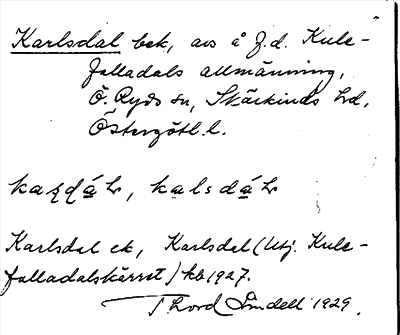 Karlsdal bek, avs å J.d. Kule-
falladals allmänning,
Ö. Ryds sn, Skärkinds hd,
Östergötl. l.
kaꞩɖáʟ, kalsdáʟ
Karlsdal ek, Karlsdal (Utj. Kule-
falladalskärret) kb 1927.
Thord Lindell 1929.